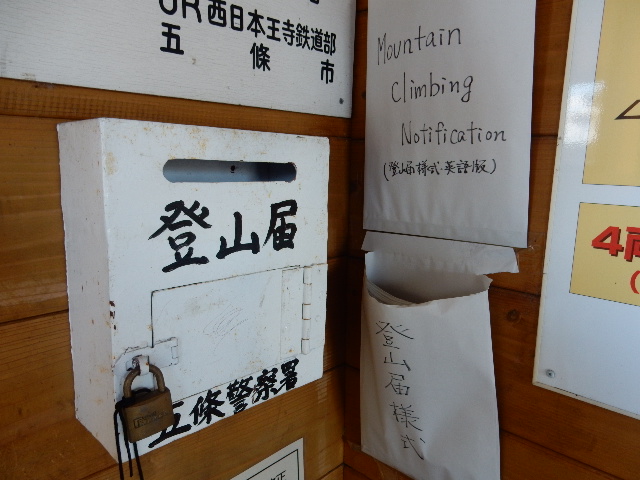 JR西日本王寺鉄道部
五條市
登山届
五條警察署
Mountain
Climbing
Notification
(登山届様式・英語版)
登山届様式
4両